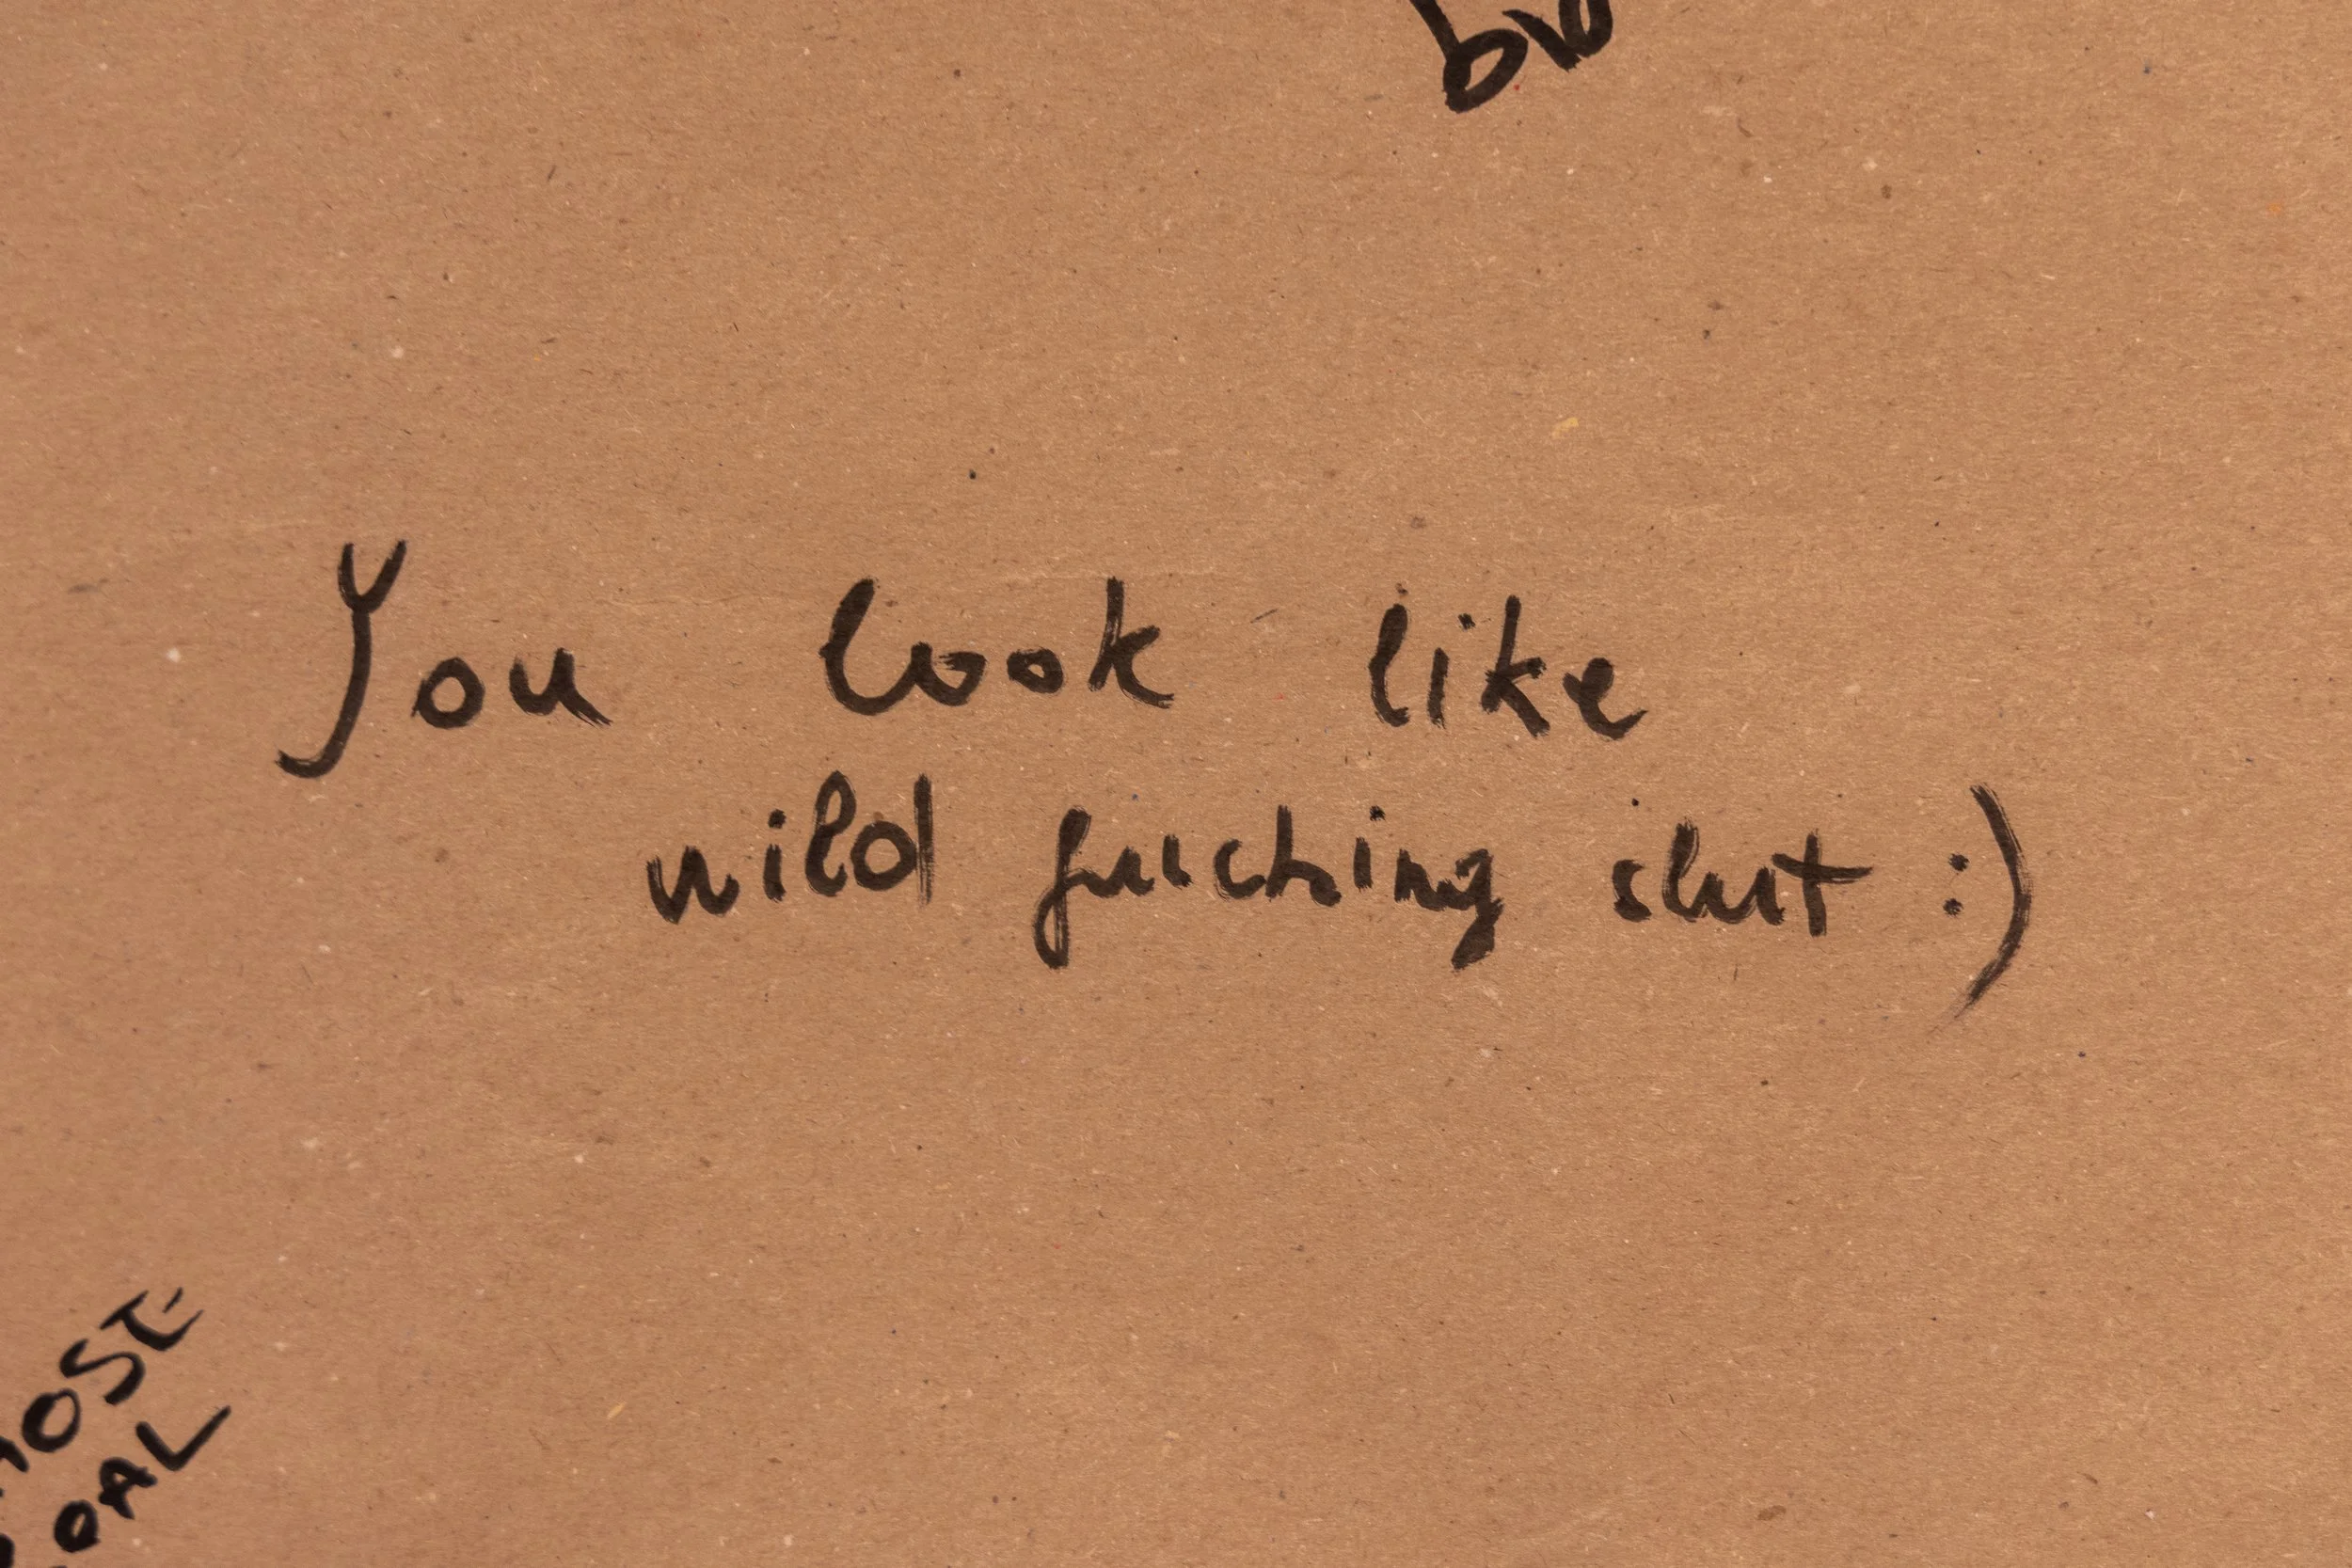 You look like
wild fucking slut :)
OSE
OAL